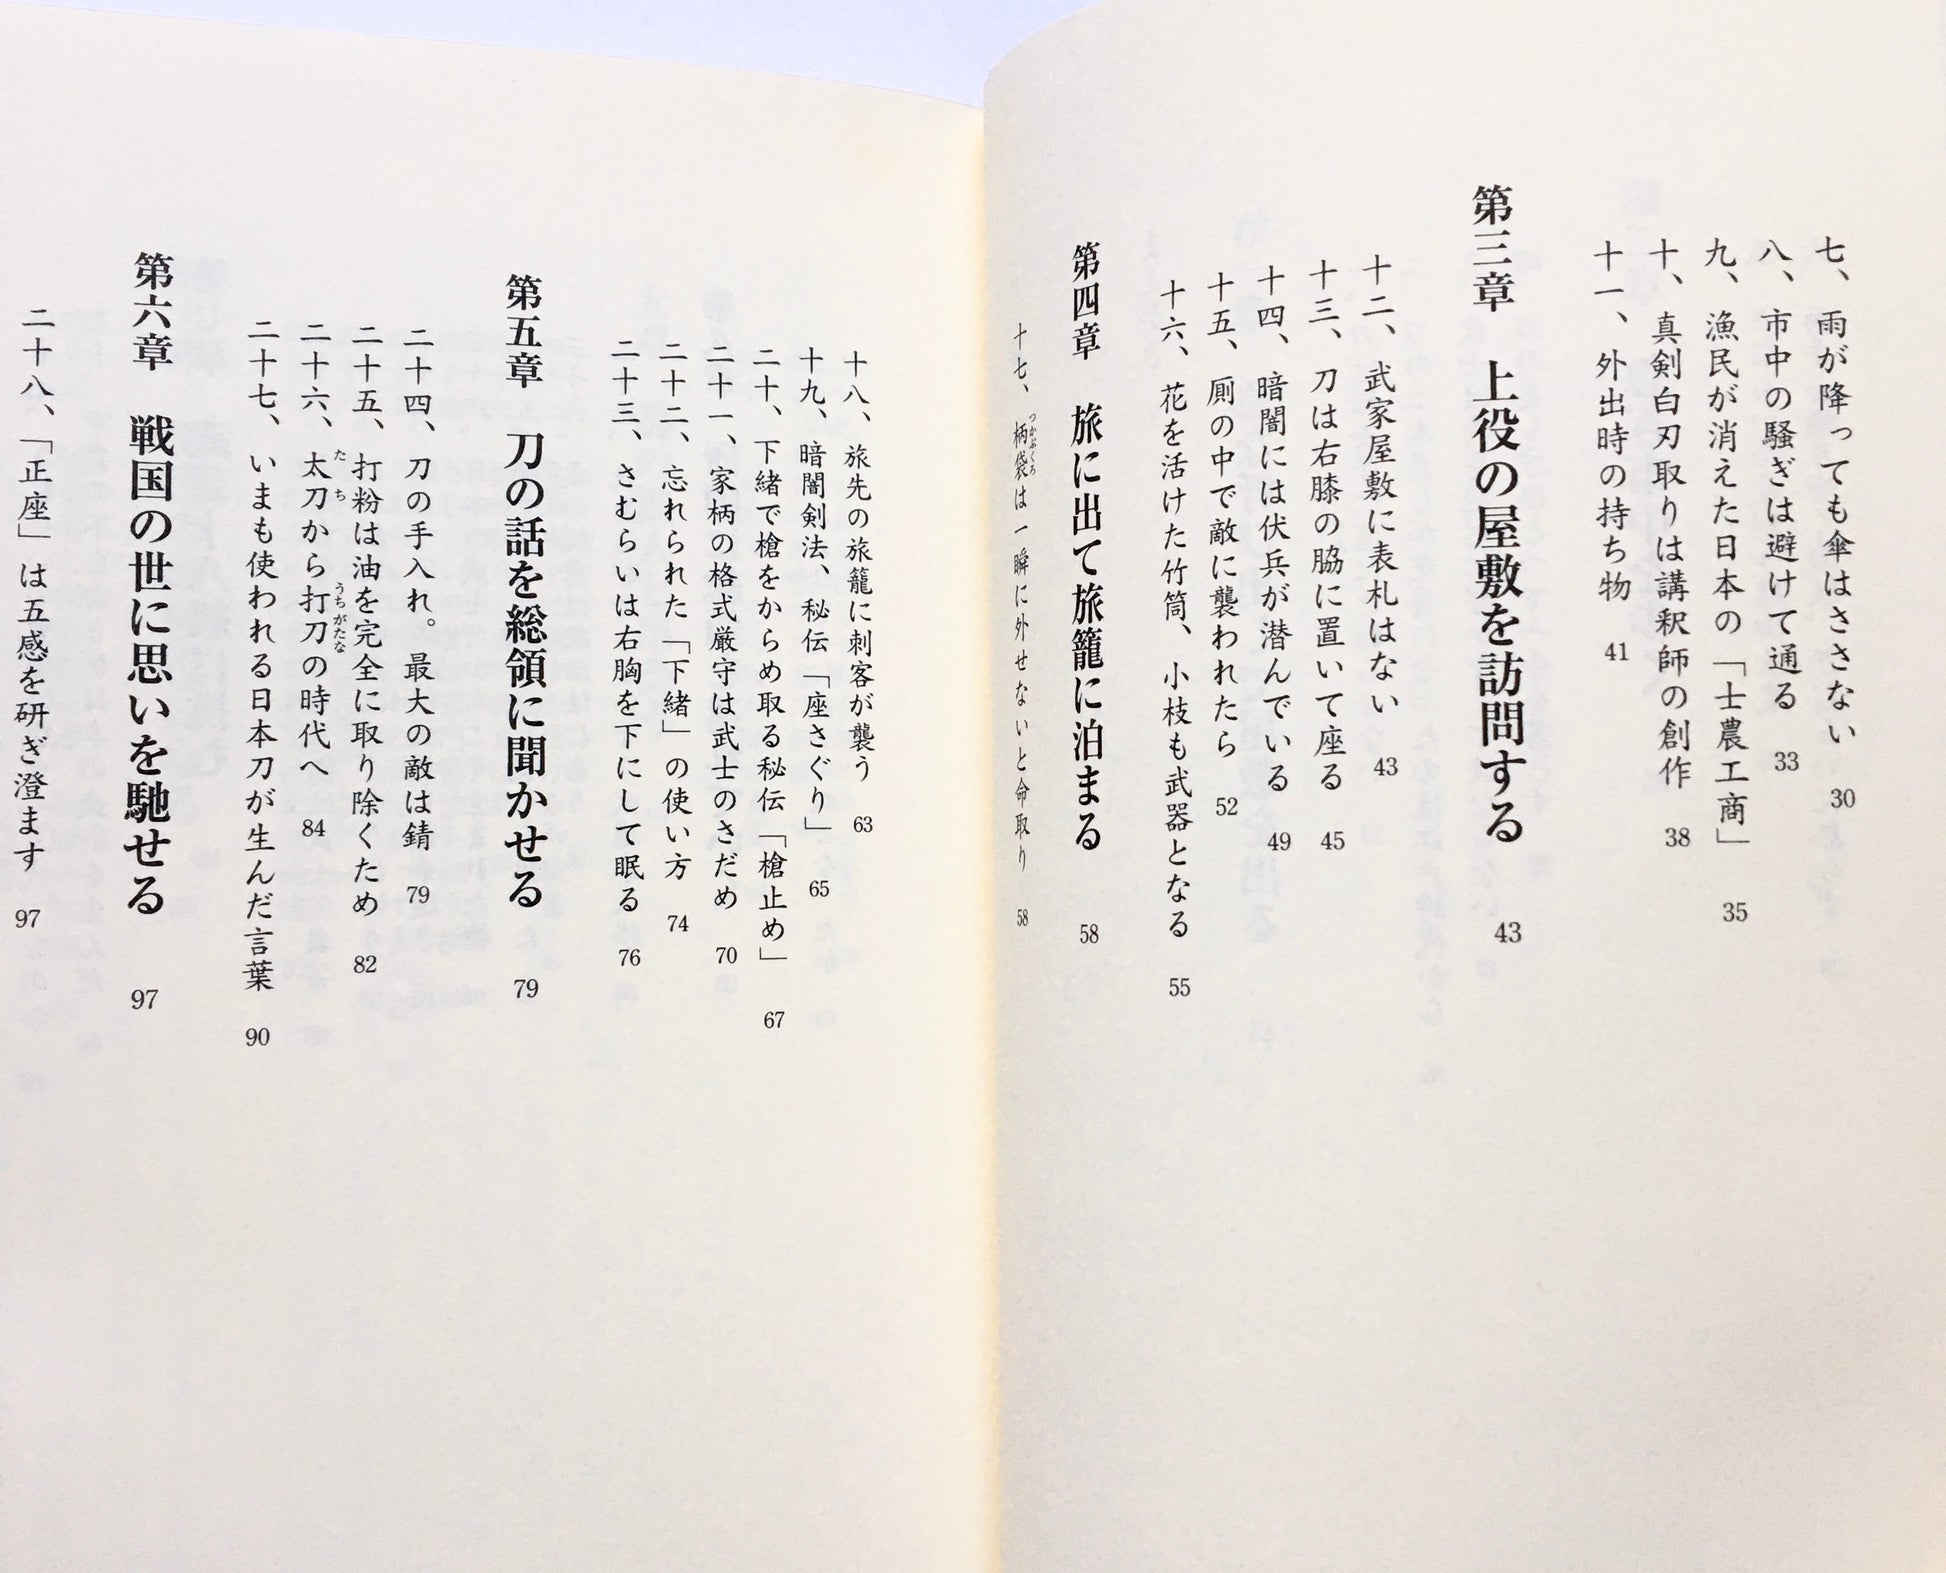 七、雨が降っても傘はささない 30
八、市中の騒ぎは避けて通る 33
九、漁民が消えた日本の「士農工商」 35
十、真剣白刃取りは講釈師の創作 38
十一、外出時の持ち物 41
第三章 上役の屋敷を訪問する 43
十二、武家屋敷に表札はない 43
十三、刀は右膝の脇に置いて座る 45
十四、暗闇には伏兵が潜んでいる 49
十五、厠の中で敵に襲われたら 52
十六、花を活けた竹筒、小枝も武器となる 55
第四章 旅に出て旅籠に泊まる 58
つかぶくろ
十七、柄袋は一瞬に外せないと命取り 58
十八、旅先の旅籠に刺客が襲う 63
十九、暗闇剣法、秘伝「座さぐり」 65
二十、下緒で槍をからめ取る秘伝「槍止め」 67
二十一、家柄の格式厳守は武士のさだめ 70
二十二、忘れられた「下緒」の使い方 74
二十三、さむらいは右胸を下にして眠る 76
第五章 刀の話を総領に聞かせる 79
二十四、刀の手入れ。最大の敵は錆 79
二十五、打粉は油を完全に取り除くため 82
たち うちがたな
二十六、太刀から打刀の時代へ 84
二十七、いまも使われる日本刀が生んだ言葉 90
第六章 戦国の世に思いを馳せる 97
二十八、「正座」は五感を研ぎ澄ます 97